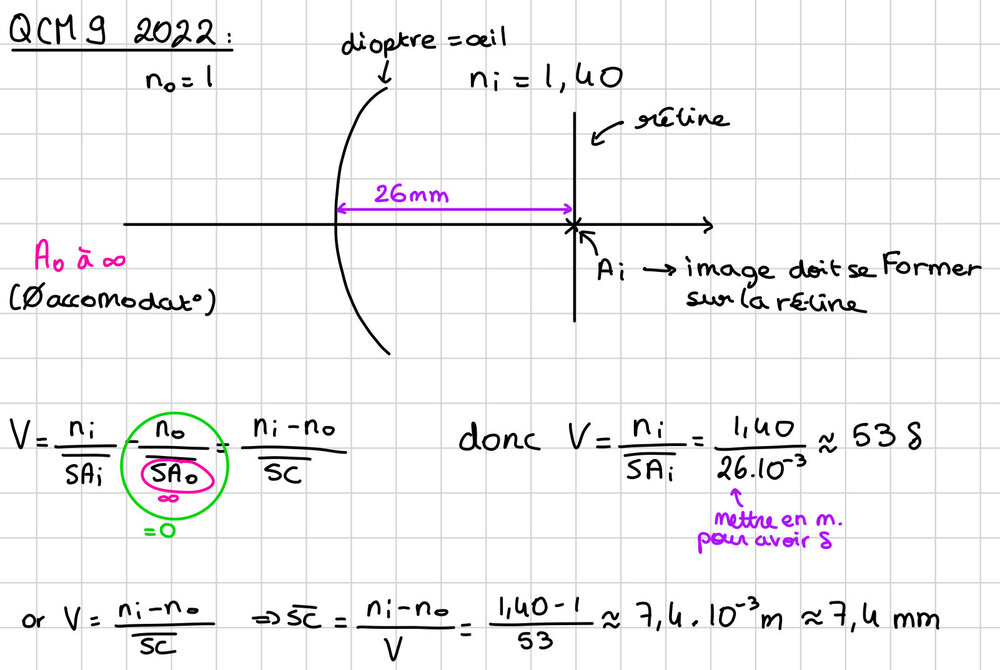 QCM 9 2022 :
dioptre = œil
n₀ = 1
nᵢ = 1,40
rétine
26mm
A₀ à ∞
(Øaccomodat°)
Aᵢ → image doit se Former
sur la rétine
V = nᵢ/SAᵢ - n₀/SA₀ = nᵢ-n₀/SC
∞
=0
donc V = nᵢ/SAᵢ = 1,40/26.10⁻³ ≈ 53 δ
mettre en m.
pour avoir δ
or V = nᵢ-n₀/SC ⇒ SC = nᵢ-n₀/V = 1,40-1/53 ≈ 7,4.10⁻³m ≈ 7,4 mm